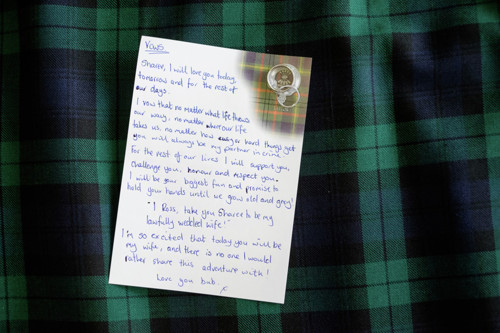 Vows
Sharee, I will love you today,
tomorrow and for the rest of
our days.
I vow that no matter what life throws
our way, no matter where our life
takes us, no matter how easy or hard things get
you will always be my partner in crime.
For the rest of our lives I will support you,
challenge you, honour and respect you.
I will be your biggest fan and promise to
hold your hands until we grow old and grey!
"I Ross, take you Sharee to be my
lawfully wedded wife!"
I'm so excited that today you will be
my wife, and there is no one I would
rather share this adventure with!
Love you bub.
x